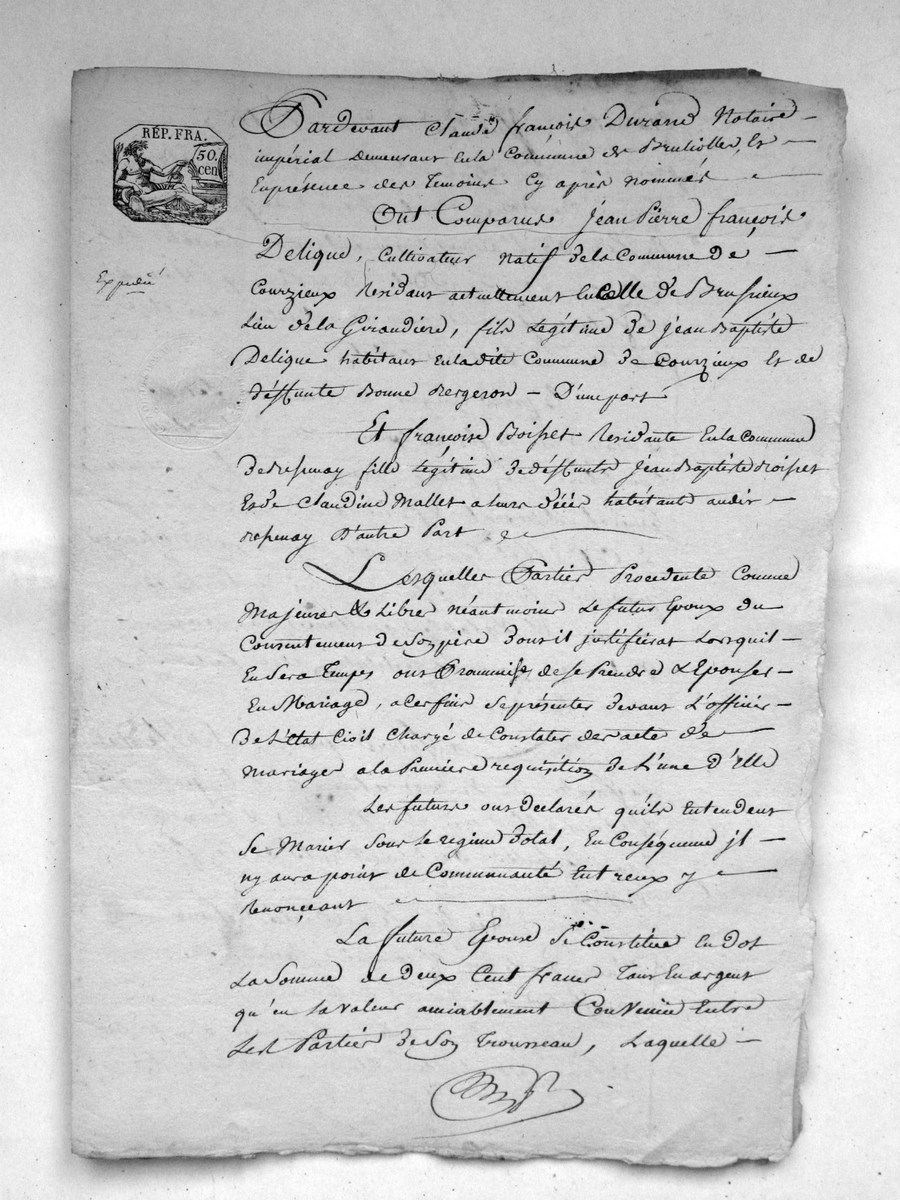 RÉP. FRA.
50
cen
Expédié
Pardevant Claude françois Durand Notaire
impérial Demeurant En la Commune de Brulliolles, Et
En présence des Temoins Cy après nommés
Ont Comparus Jean Pierre françois
Delique, Cultivateur Natif de la Commune de
Courzieux Residant actuellement En Celle de Brussieux
Lieu de la Giraudiere, fils Legitime de Jean Baptiste
Delique habitant En la dite Commune de Courzieux Et de
déffunte Bonne Bergeron - D'une part
Et françoise Boisset Residante En la Commune
de fille Légitime de déffunt Jean Baptiste Boisset
Et de Claudine Mallet a leurs décés habitant audit
D'autre Part
Lesquelles Partier Procedente Comme
Majeures & Libre néantmoins Le futur Epoux du
Consentement de Son père dont il justifierat Lorsquil
En Sera Temps ont Prommis de se Prendre & Epouser
En Mariage, a ces fins se présenter devant L'officier
De L'état Civil Chargé de Constater des acte de
Mariages a la Premiere requisition de L'une d'Elle
Les futurs ont declarés qu'ils Entendent
Se Marier Sous Le regime dotal, En Conséquence jl
ny aura point de Communauté Entreux y
Renonçeant
La future Epouse Se Constitüe En dot
La Somme de deux Cent francs Tant En argent
qu'en la valeur amiablement Convenüe Entre
Les Partiés de Son Trousseau, Laquelle